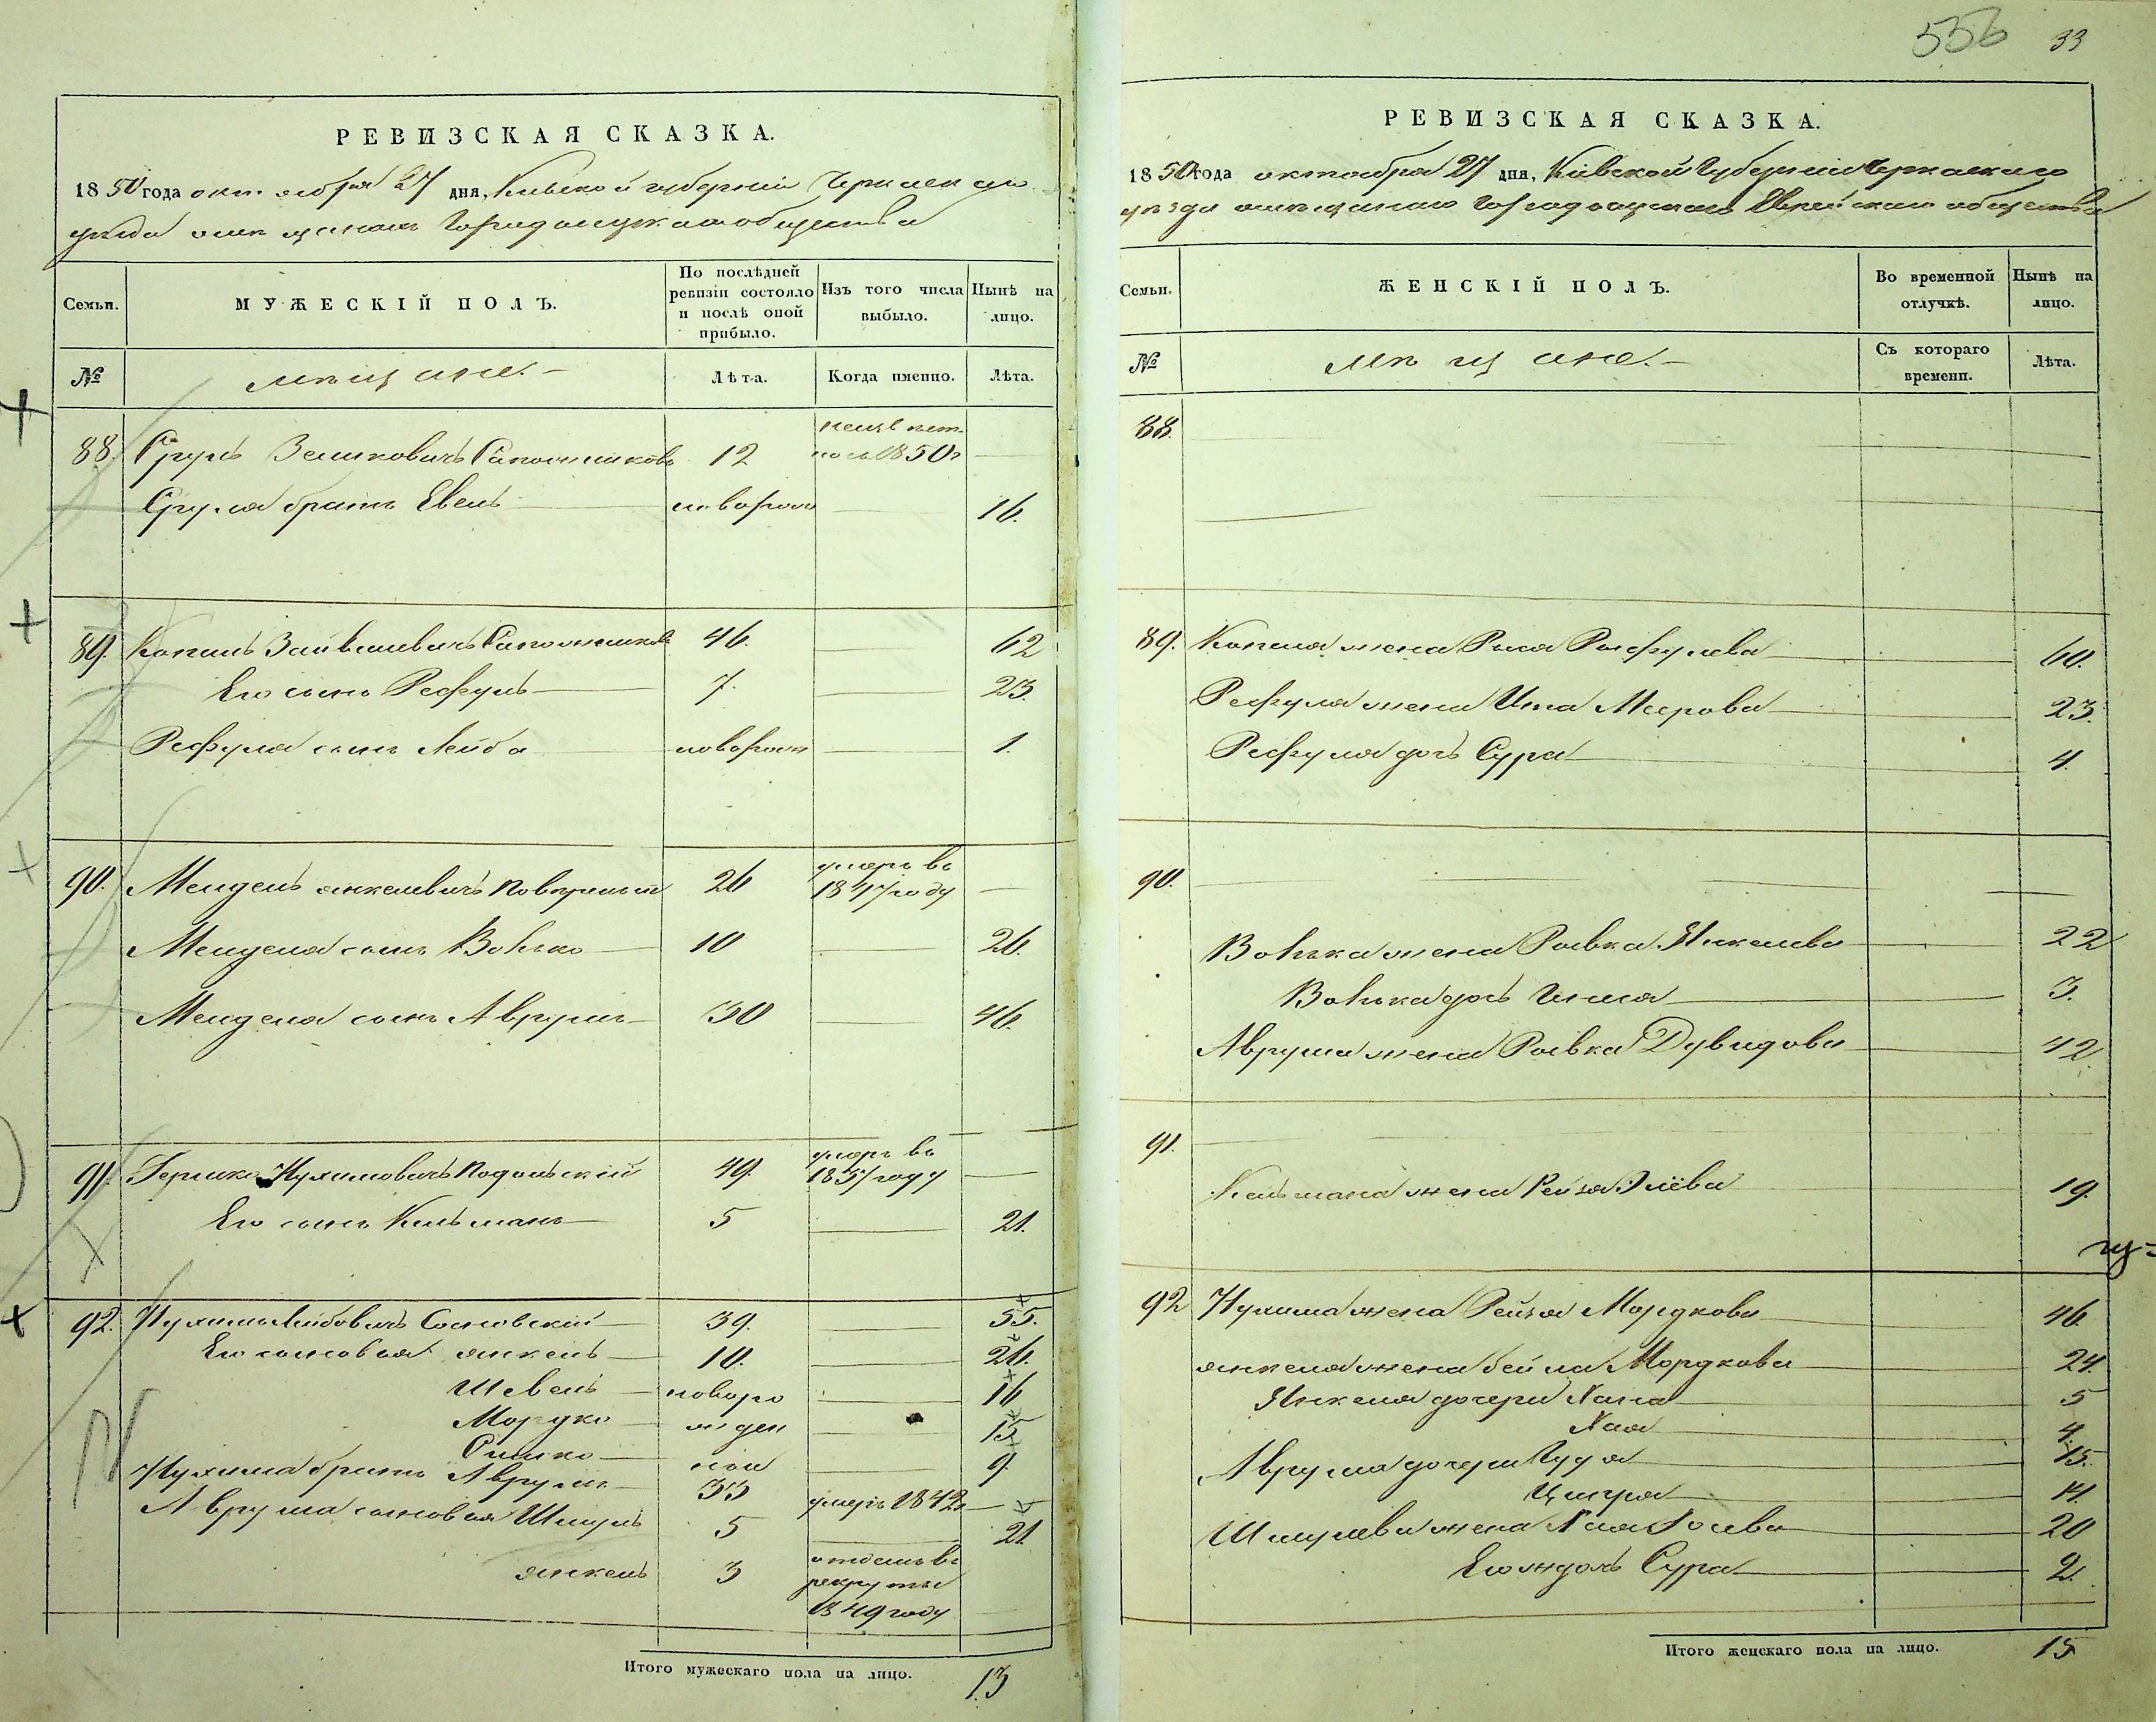 РЕВИЗСКАЯ СКАЗКА.
1850 года октября 27 дня, Киевской губерніи Черкаскаго
уѣзда мѣщанъ Городищскаго общества
Семьи.
МУЖЕСКІЙ ПОЛЪ.
По послѣдней ревизіи состояло и послѣ оной прибыло.
Изъ того числа выбыло.
Нынѣ на лицо.
№
мѣщане.
Лѣта.
Когда именно.
Лѣта.
88. Сруль Зельковичъ Сапожниковъ 12 1850г —
Сруля братъ Евель новорож 16.
89. Копель Зайвелевичъ Сапожниковъ 46. — 62
Его сынъ Рефуль 7. — 23.
Рефуля сынъ Лейба новорожд — 1.
90. Мендель Янкелевичъ 26 умеръ въ 1847 году —
Менделя сынъ Волько 10 — 26.
Менделя сынъ Аврумъ 30 — 46.
91. Гершко Нухимовичъ Подольскій 49. умеръ въ году —
Его сынъ Кельманъ 5 — 21.
92. Нухимъ Лейбовичъ Сосновскій 39. — 55.
Его сыновья Янкель 10. — 26.
Шевель новоро — 16
Мордко жден — 15
— 9.
Нухима братъ Аврумъ 33 умеръ 1842 —
Аврума сыновья Шмуль 5 — 21.
Янкель 3 отданъ въ рекруты 1849 году —
Итого мужескаго пола на лицо. 13
556 33
РЕВИЗСКАЯ СКАЗКА.
1850 года октября 27 дня, Кіевской Губерніи Черкаскаго
уѣзда мѣщанъ Городищскаго Еврейскаго общества
Семьи.
ЖЕНСКІЙ ПОЛЪ.
Во временной отлучкѣ.
Нынѣ на лицо.
№
мѣщане.
Съ котораго времени.
Лѣта.
88.
89. Копеля жена Рися Рефулева 60.
Рефуля жена Ита Меерова 23.
Рефуля дочь Сура 4.
90.
Волька жена Ривка Янкелева 22
Волька дочь 3.
Аврума жена Ривка Дувидова 42
91.
Кельмана жена Рейзя 19.
92 Нухима жена Рейзя Мордкова 46.
Янкеля жена Бейла Мордкова 24.
Янкеля дочери Хана 5
Хая 4.
Аврума дочери 15.
14.
Шмулева жена Хая 20
Его ж дочь Сура 2.
Итого женскаго пола на лицо. 15